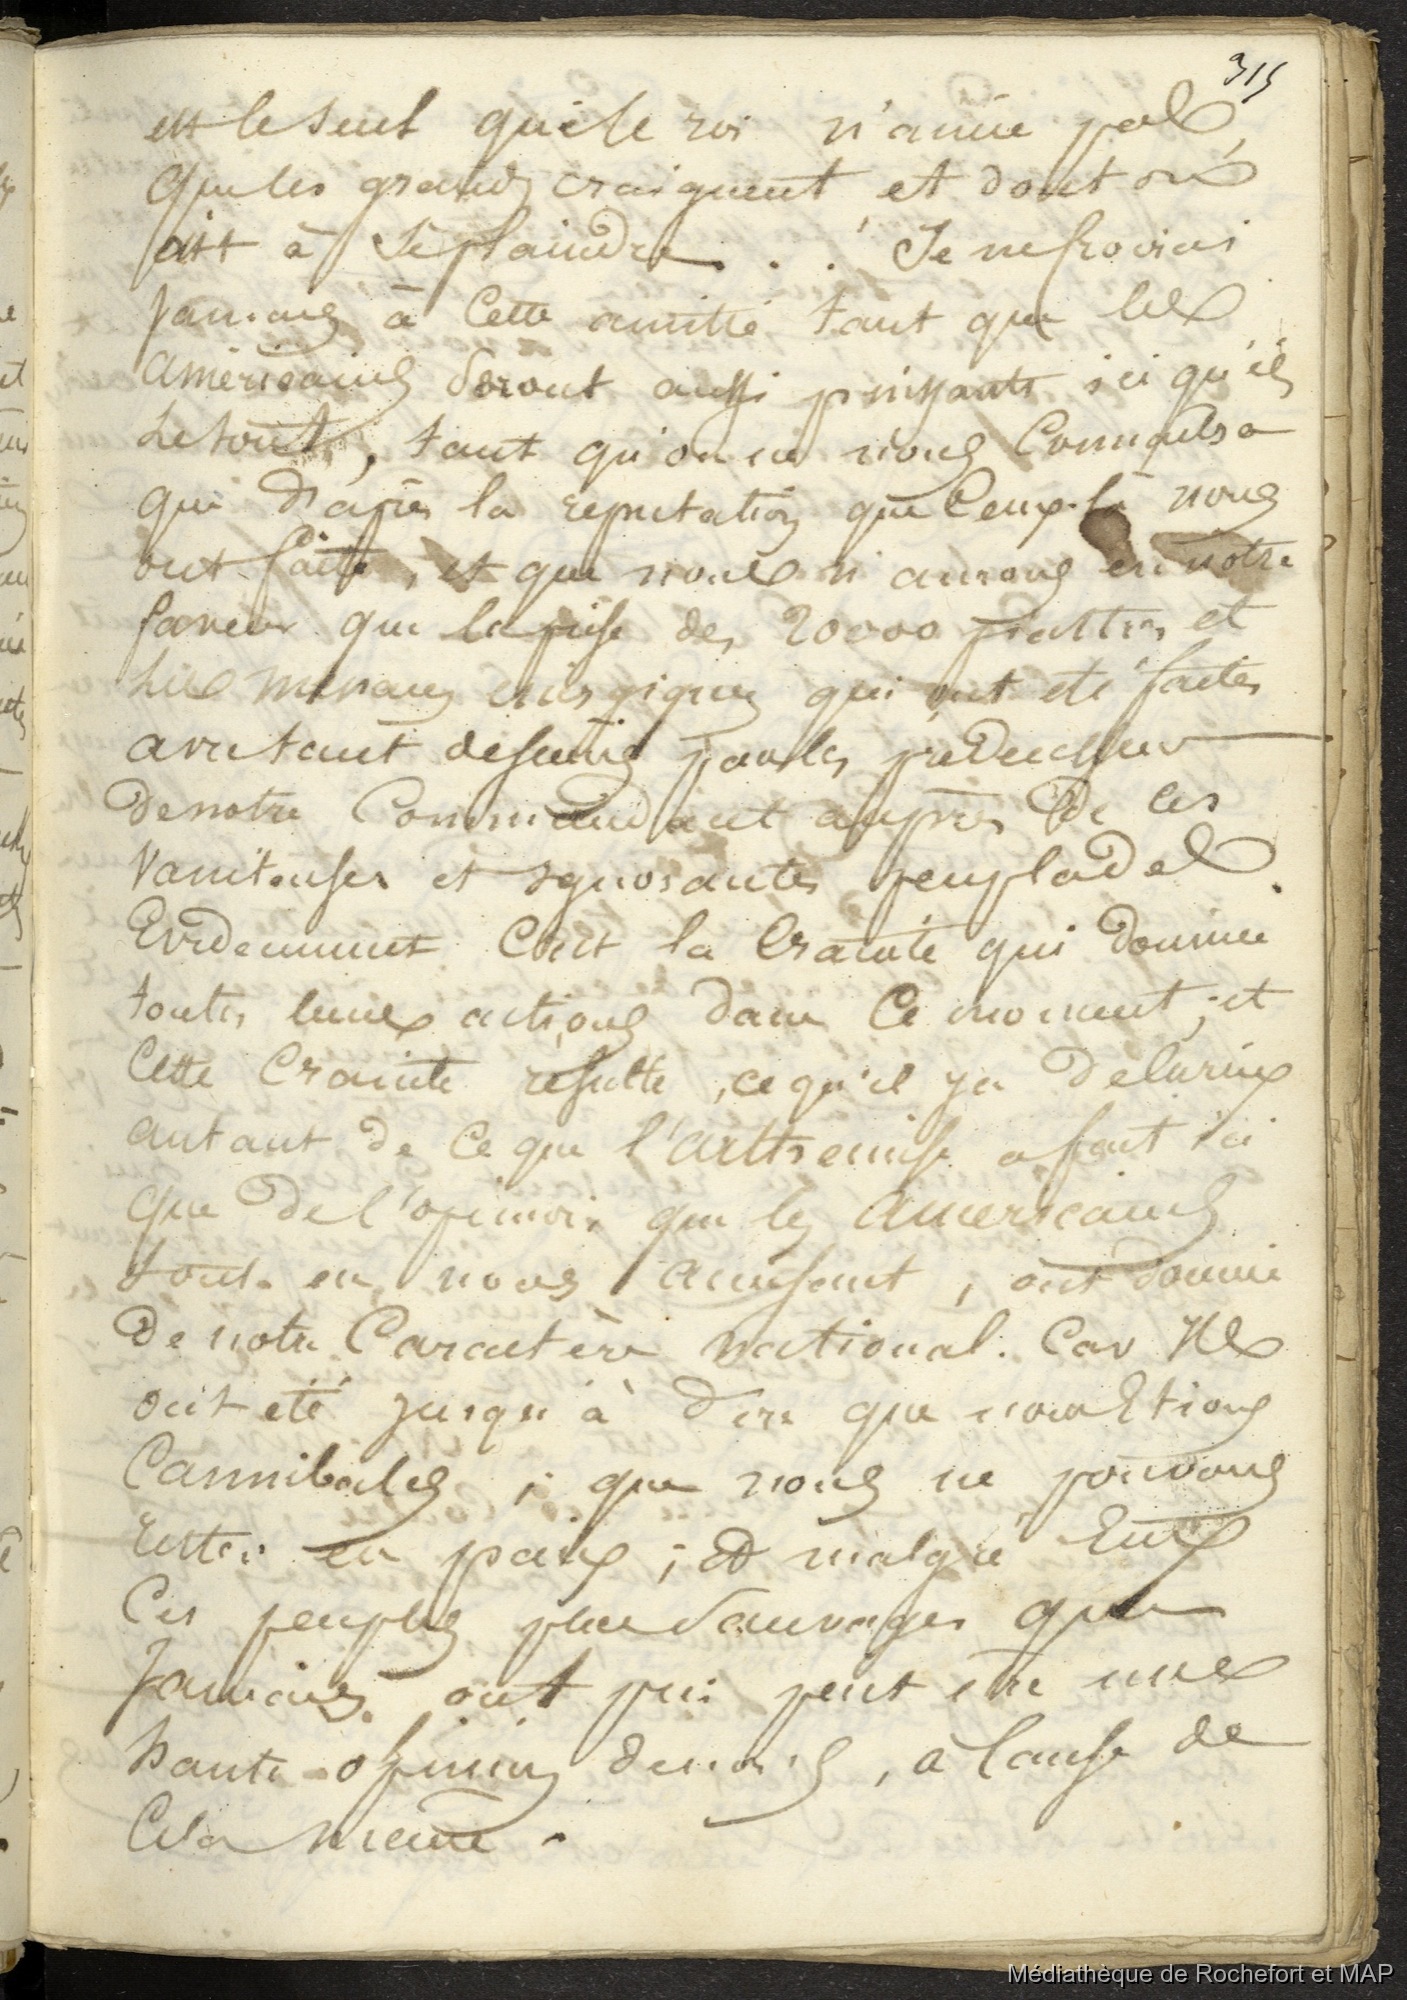 315
est le seul que le roi n'aime pas,
que les grands craignent et dont on
ait à se plaindre . . . ! Je ne croirai
Jamais à cette amitié tant que les
américains seront aussi puissants ici qu'ils
le sont, tant qu'on ne nous connaitra
que d'après la reputation que ceux-là nous
ont faite, et que nous n'aurons en notre
faveur que la prise des 20000 piastres et
les menaces énergiques qui ont été faites
avec tant de par les prédécesseur
de notre Commandant auprès de ces
vaniteuses et ignorantes peuplades.
Evidemment c'est la crainte qui domine
toutes leurs actions dans ce moment; et
cette crainte résulte, ce qu'il y a de curieux
autant de ce que l'artémise a fait ici
que de l'opinion que les américains
tout en nous , ont donnée
de notre Caractère national. Car Ils
ont été jusqu'à dire que nous Etions
Cannibales; que nous ne pouvons
rester en paix; et malgré Eux
ces peuples plus sauvages que
Jamais ont pris peut etre une
haute opinion de nous, à cause de
Cela même.
Médiathèque de Rochefort et MAP